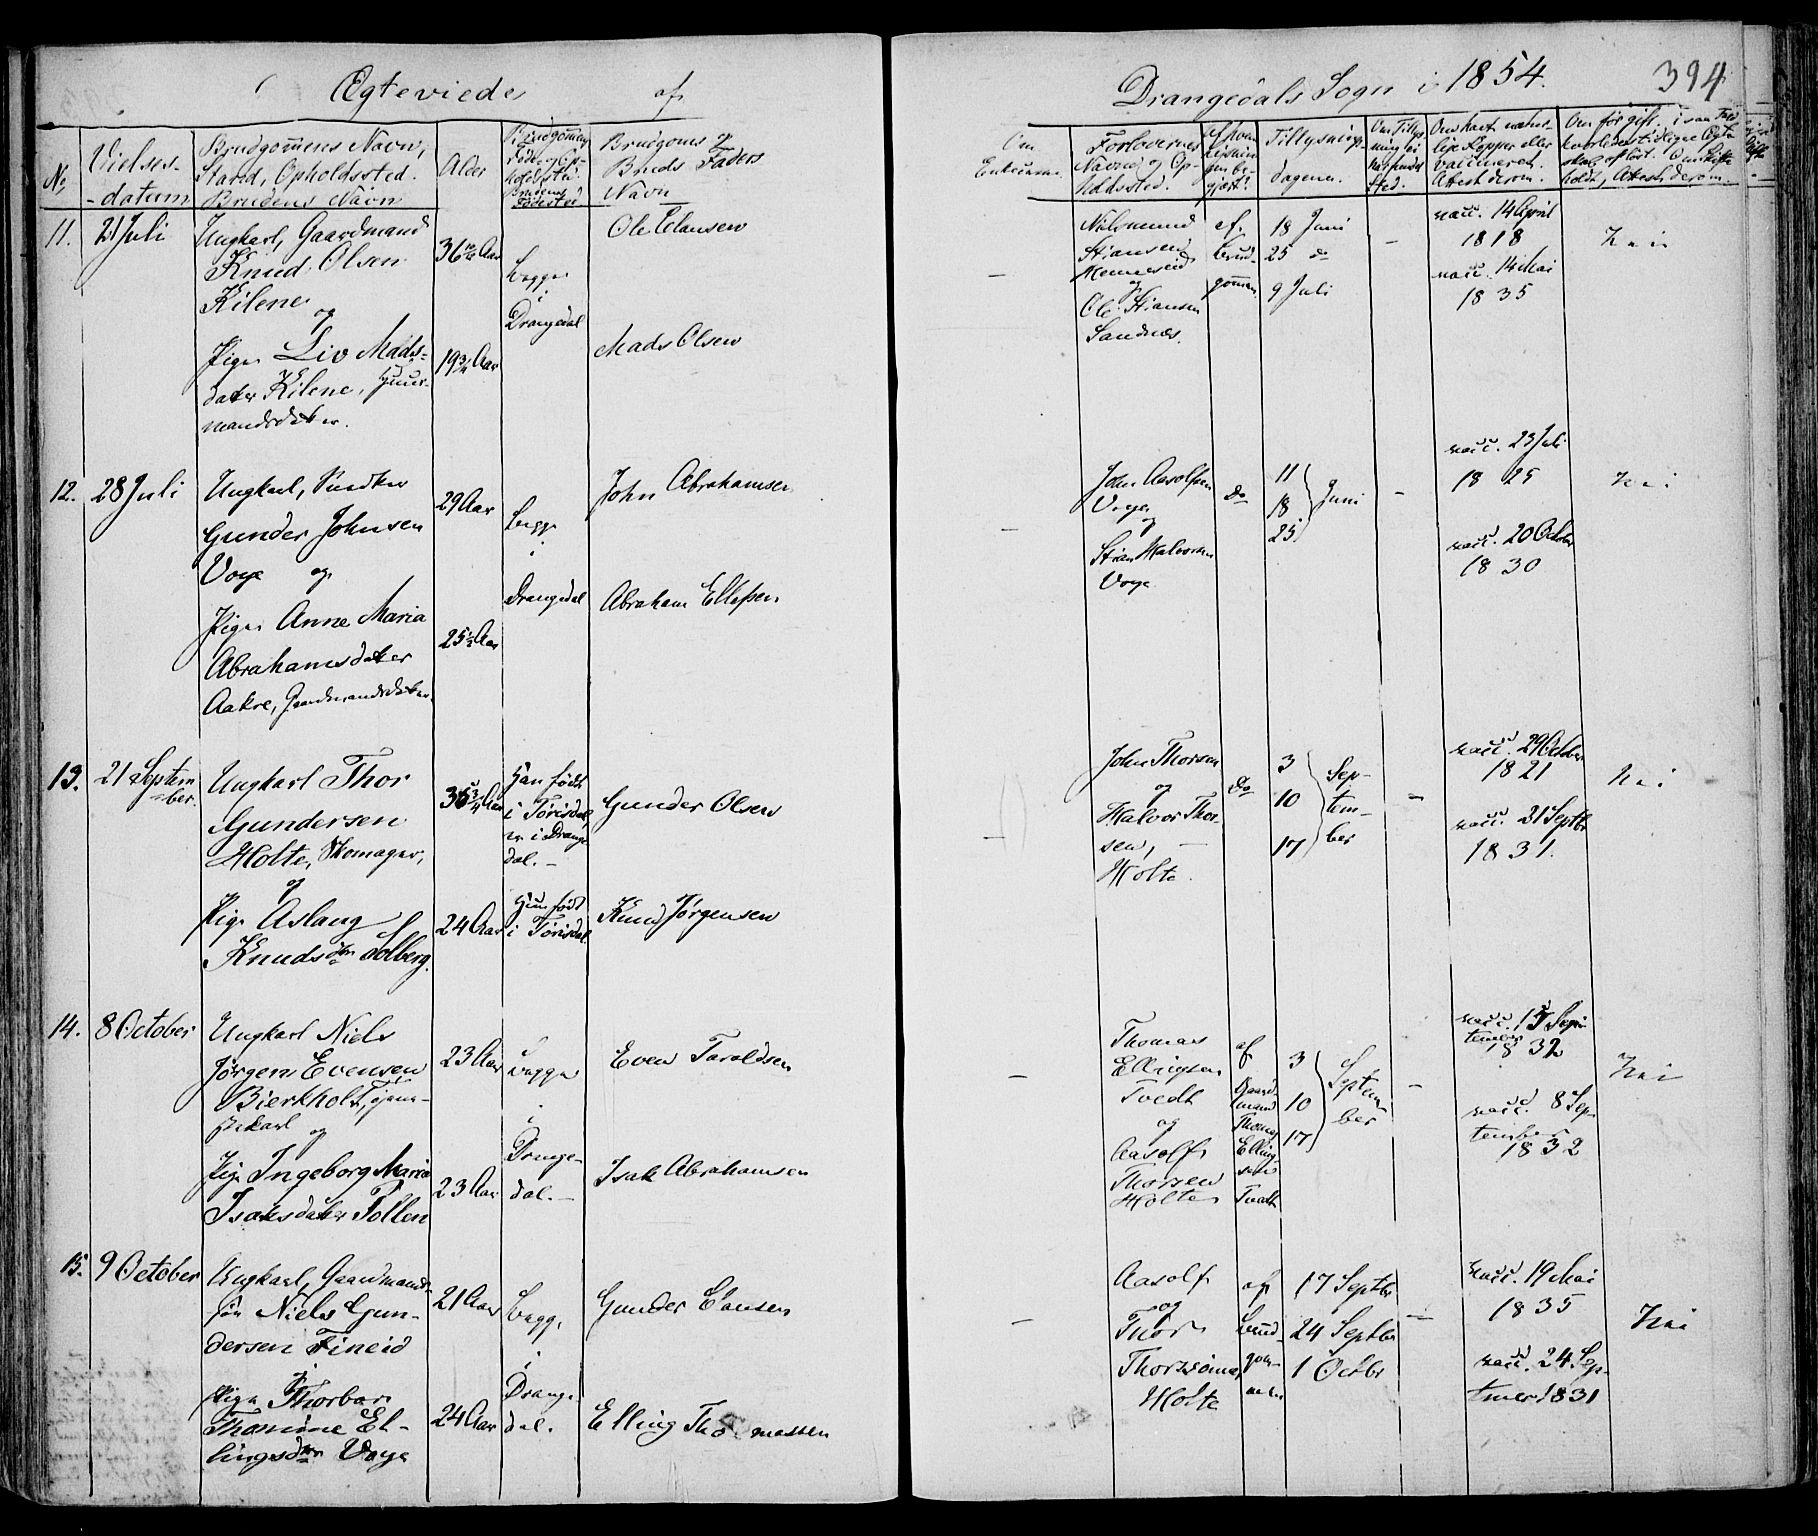 Ægteviede af
Drangedals Sogn i 1854.
394
No
Vielses-
-datum
Brudgommens Navn,
Stand, Opholdssted.
Brudens Navn
Alder
Brudgoms og
Bruds Faders
Navn
Om
Forlovernes
Navne og Op-
holdssted.
Tillysnings-
dagene.
11.
21 Juli
Ungkarl, Gaardmand
Knud Olsen
Kilene
og
Pige Liv Mads-
dater Kilene, Huus-
mandsdater.
36 10/12 Aar
19 3/4 Aar
begge
i
Drangedal
Ole Clausen
Mads Olsen
-
Stiansen
Henneseid
og
Ole Stiansen
Sandnæs.
af
brud-
gommen.
18 Juni
25 do
9 Juli
-
vacc. 14 April
1818
vacc. 14 Mai
1835
Nei
12.
28 Juli
Ungkarl, Snedker
Gunder Johnsen
Voje og
Pige Anne Maria
Abrahamsdater
Aakre, Gaardmandsdater.
29 Aar
25 1/2 Aar
begge
i
Drangedal
John Abrahamsen
Abraham Ellefsen
-
John Aasolfsen
Voje
og
Stian Halvorsen
Voje
do
11
18
25
Juni
-
vacc. 23 Juli
1825
vacc. 20 Octobr
1830
Nei
13.
21 Septem-
ber.
Ungkarl Thor
Gundersen
Holte, Skomager,
og
Pige Aslaug
Knudsdtr Solberg.
36 3/4 Aar
24 Aar
Han født
i Tørisdal,
er i Drange-
dal. -
Hun født
i Tørisdal
Gunder Olsen
Knud Jørgensen
John Thorsen
og
Halvor Thor-
sen, -
Holte.
do
3
10
17
Sep-
tem-
ber
-
vacc. 29 Octobr
1821
vacc. 21 Septbr
1831.
Nei
14.
8 October
Ungkarl Niels
Jørgen Evensen
Bierkholt, Tjene-
stekarl og
Pige Ingeborg Maria
Isaksdater Tollen
23 Aar
23 Aar
begge
i
Drange-
dal. -
Even Taroldsen
Isak Abrahamsen
-
Thomas
Ellingsen
Tvedt
og
Aasolf
Thorsen
Holte
af
Gaard-
mand
Thomas
Elling-
sen
Tvedt
3
10
17
Septem-
ber
-
vacc. 15 Sep-
tember
1832
vacc. 8 Sep-
tember
1832
Nei
15.
9 October
Ungkarl, Gaardmands-
søn Niels Gun-
dersen Fineid
og
Pige Thorbor
Thomine El-
lingsdtr Voje
21 Aar
24 Aar
begge
i
Drange-
dal.
Gunder Clausen
Elling Thomassen
-
Aasolf
og
Thor
Thorssønner
Holte
af
brud-
gom-
men
17 Septbr
24 Septbr
1 Octbr
-
vacc. 19 Mai
1835
vacc. 24 Sep-
tember 1831
Nei